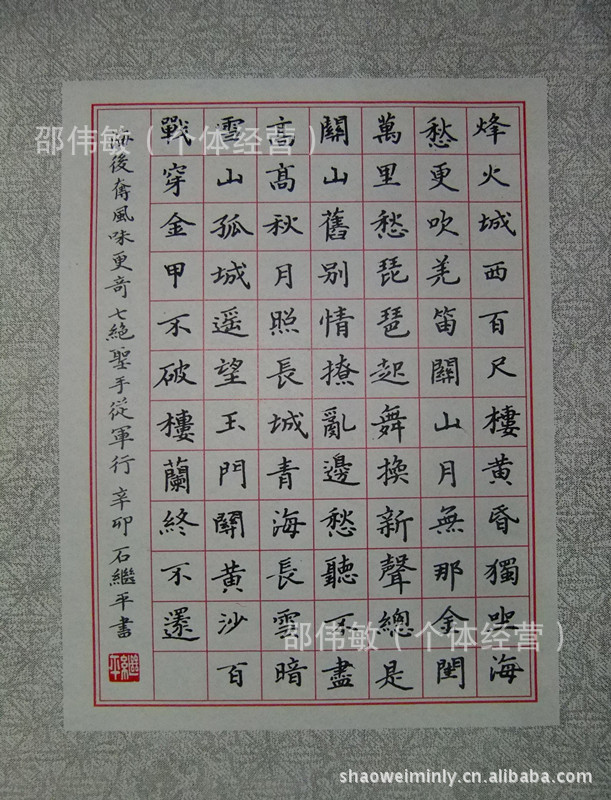 烽火城西百尺樓黃昏獨坐海
愁更吹羌笛關山月無那金閨
萬里愁琵琶起舞換新聲總是
關山舊別情撩亂邊愁聽不盡
高高秋月照長城青海長雲暗
雪山孤城遥望玉門關黃沙百
戰穿金甲不破樓蘭終不還
海後奪風味更奇 七絕聖手從軍行 辛卯 石繼平書
繼平
邵伟敏（个体经营）
邵伟敏（个体经营）
shaoweiminly.cn.alibaba.com